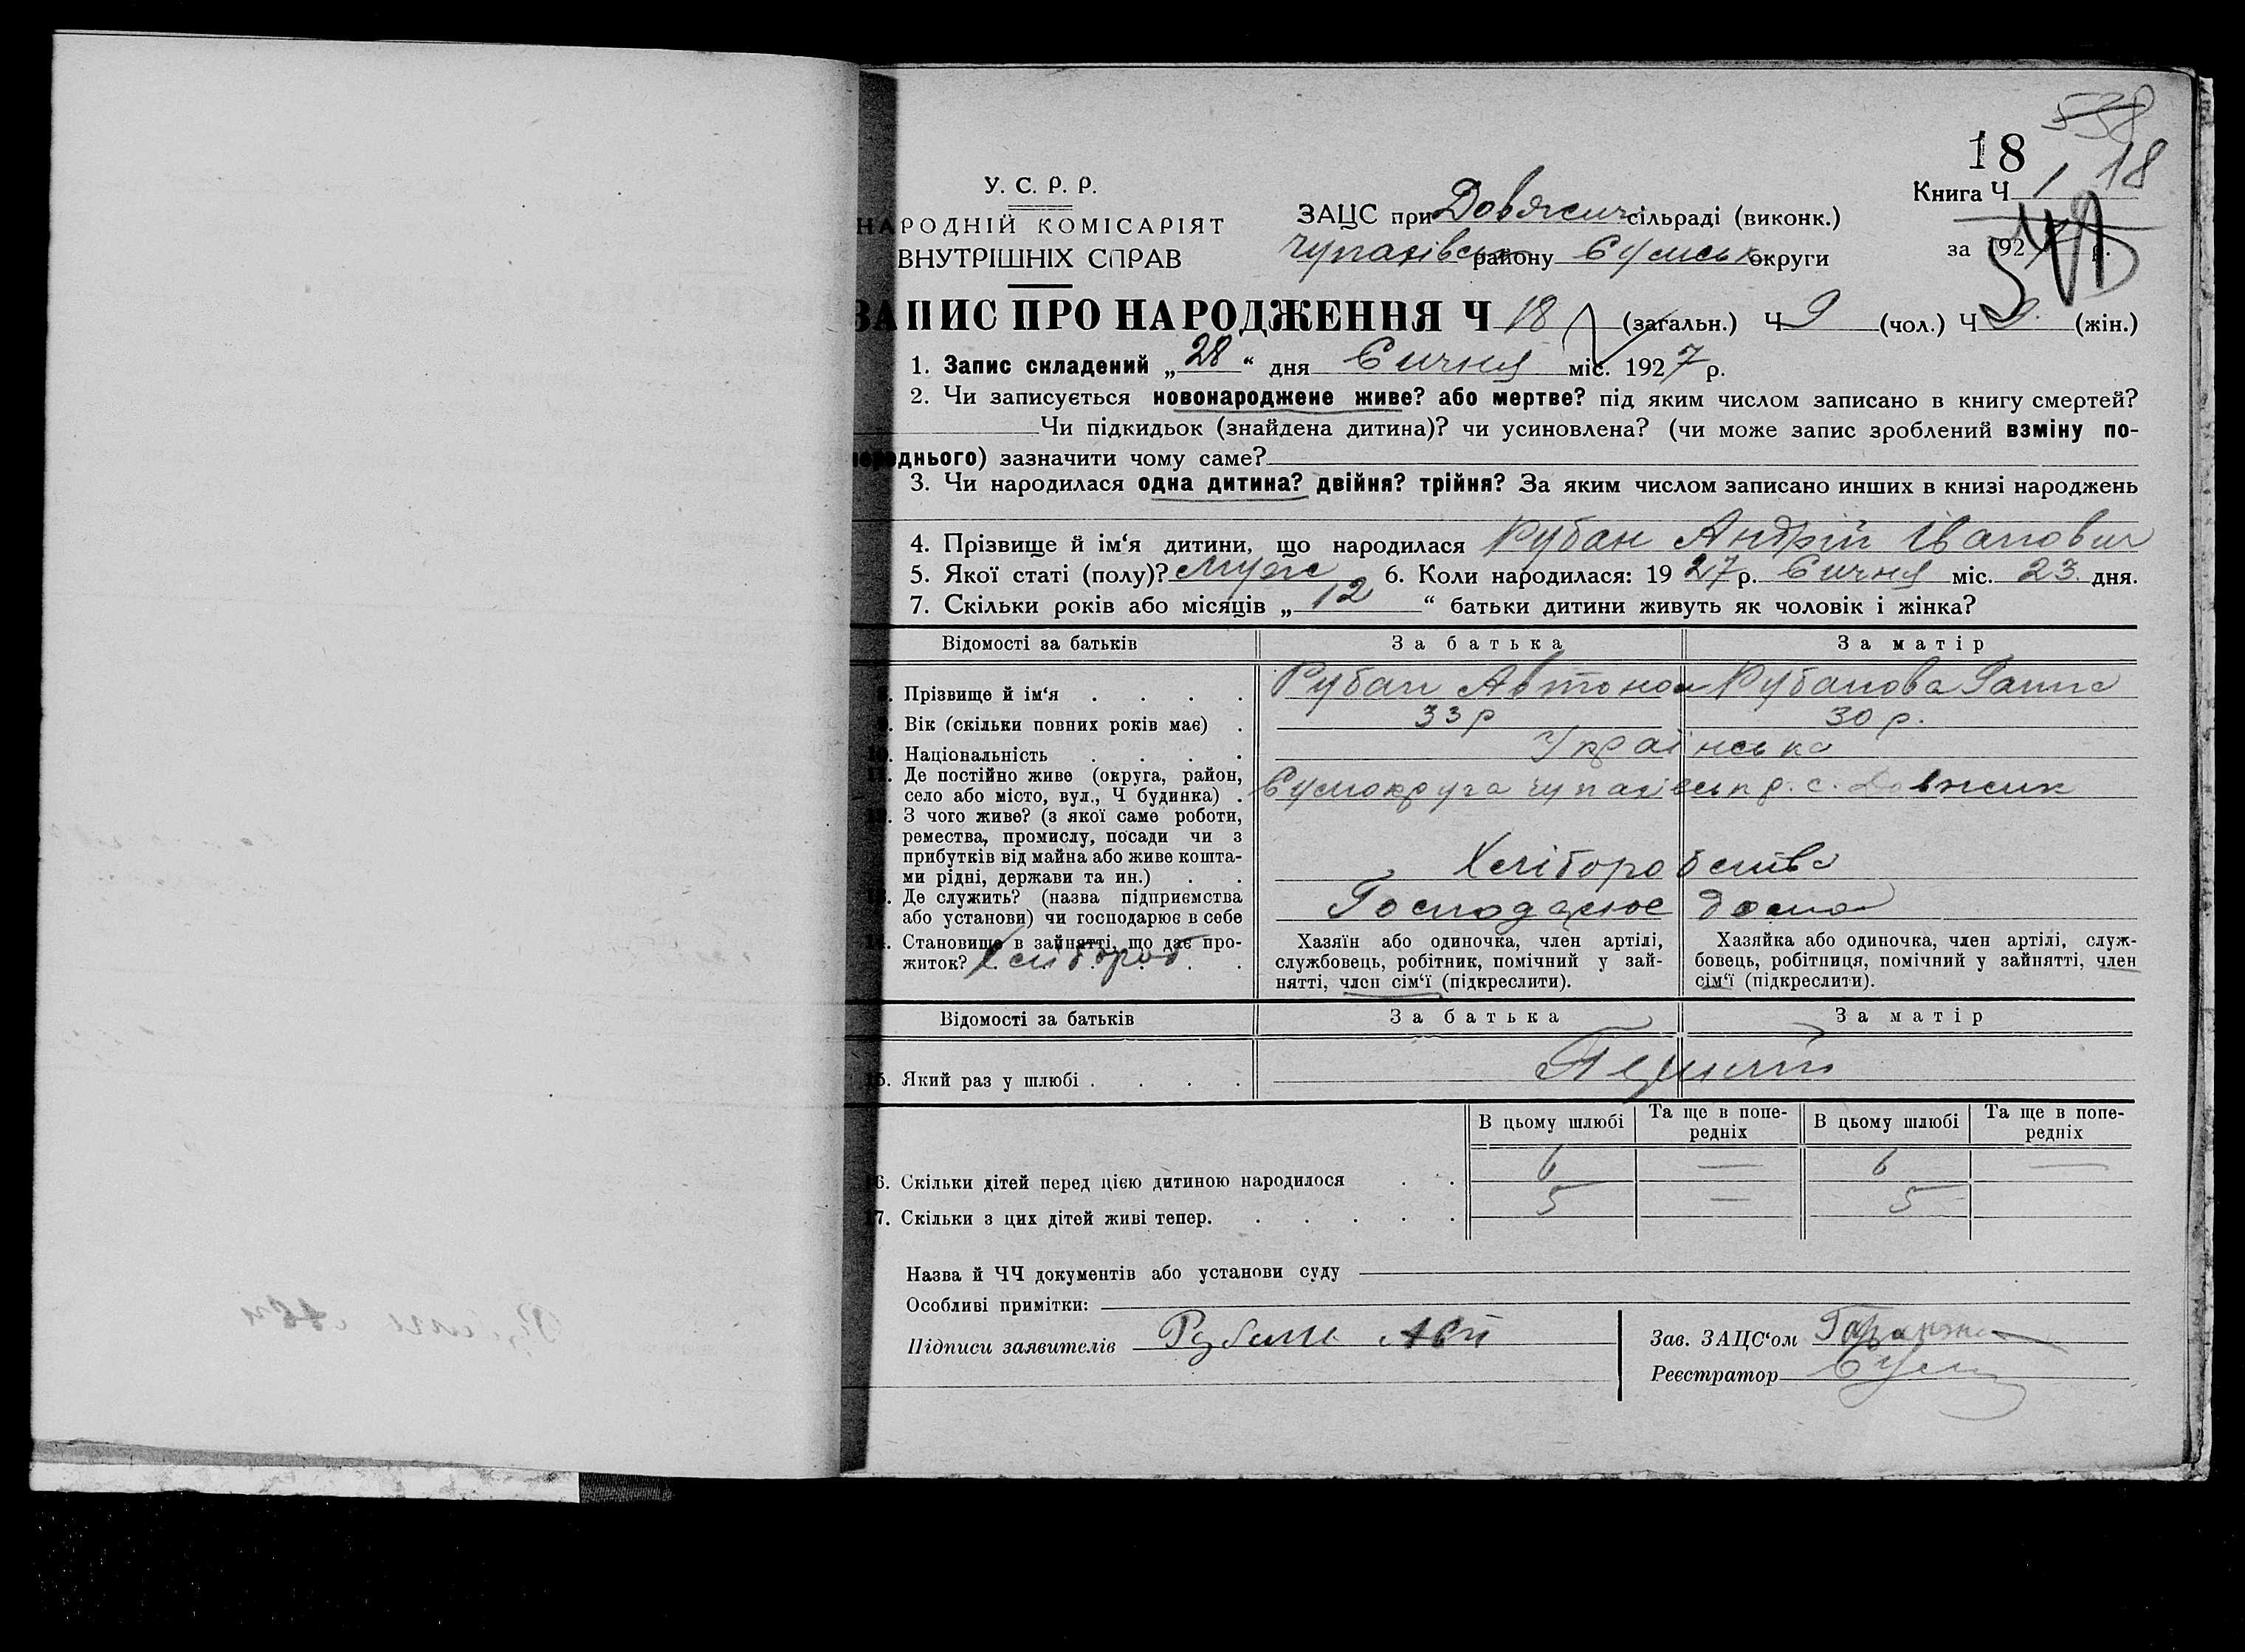 538
18
18
У. С. Р. Р.
НАРОДНІЙ КОМІСАРІЯТ
ВНУТРІШНІХ СПРАВ
ЗАЦС при Довжик сільраді (виконк.)
Чупахівськ району Сумськ округи
Книга Ч 1
за 1927 р.
ЗАПИС ПРО НАРОДЖЕННЯ Ч 18 (загальн.) Ч 9 (чол.) Ч 9 (жін.)
1. Запис складений „28“ дня Січня міс. 1927 р.
2. Чи записується новонароджене живе? або мертве? під яким числом записано в книгу смертей?
Чи підкидьок (знайдена дитина)? чи усиновлена? (чи може запис зроблений взміну по-
переднього) зазначити чому саме?
3. Чи народилася одна дитина? двійня? трійня? За яким числом записано инших в книзі народжень
4. Прізвище й ім‘я дитини, що народилася Рубан Андрій Іванович
5. Якої статі (полу)? муже 6. Коли народилася: 1927 р. Січня міс. 23 дня.
7. Скільки років або місяців „12“ батьки дитини живуть як чоловік і жінка?
Відомості за батьків За батька За матір
8. Прізвище й ім‘я . . . . Рубан Автоном Рубанова Ганна
9. Вік (скільки повних років має) . 33 р 30 р.
10. Національність . . . . Українська
11. Де постійно живе (округа, район,
село або місто, вул., Ч будинка) . Сумокруга Чупахівськ р. с. Довжик
12. З чого живе? (з якої саме роботи,
ремества, промислу, посади чи з
прибутків від майна або живе кошта-
ми рідні, держави та ин.) . . Хліборобства
13. Де служить? (назва підприємства
або установи) чи господарює в себе Господарює дома
14. Становище в зайнятті, що дає про-
житок? Хлібороб
Хазяїн або одиночка, член артілі,
службовець, робітник, помічний у зай-
нятті, член сім‘ї (підкреслити).
Хазяйка або одиночка, член артілі, служ-
бовець, робітниця, помічний у зайнятті, член
сім‘ї (підкреслити).
Відомості за батьків За батька За матір
15. Який раз у шлюбі . . . . Перший
В цьому шлюбі Та ще в попе-
редніх В цьому шлюбі Та ще в попе-
редніх
16. Скільки дітей перед цією дитиною народилося . . 6 — 6 —
17. Скільки з цих дітей живі тепер. . . . . . 5 — 5
Назва й ЧЧ документів або установи суду
Особливі примітки:
Підписи заявителів Рубан Авт
Зав. ЗАЦС‘ом
Реєстратор